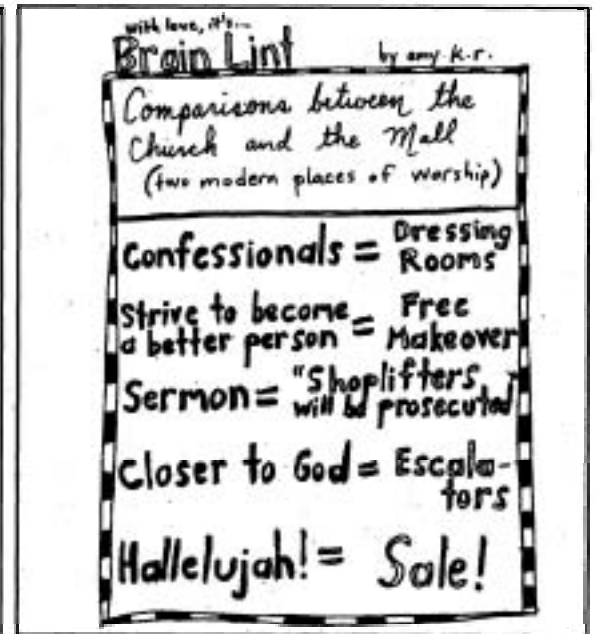 with love, it's...
Brain Lint by amy k.r.
Comparisons between the
Church and the Mall
(two modern places of worship)
Confessionals = Dressing Rooms
Strive to become a better person = Free Makeover
Sermon = "Shoplifters will be prosecuted"
Closer to God = Escala-
tors
Hallelujah! = Sale!